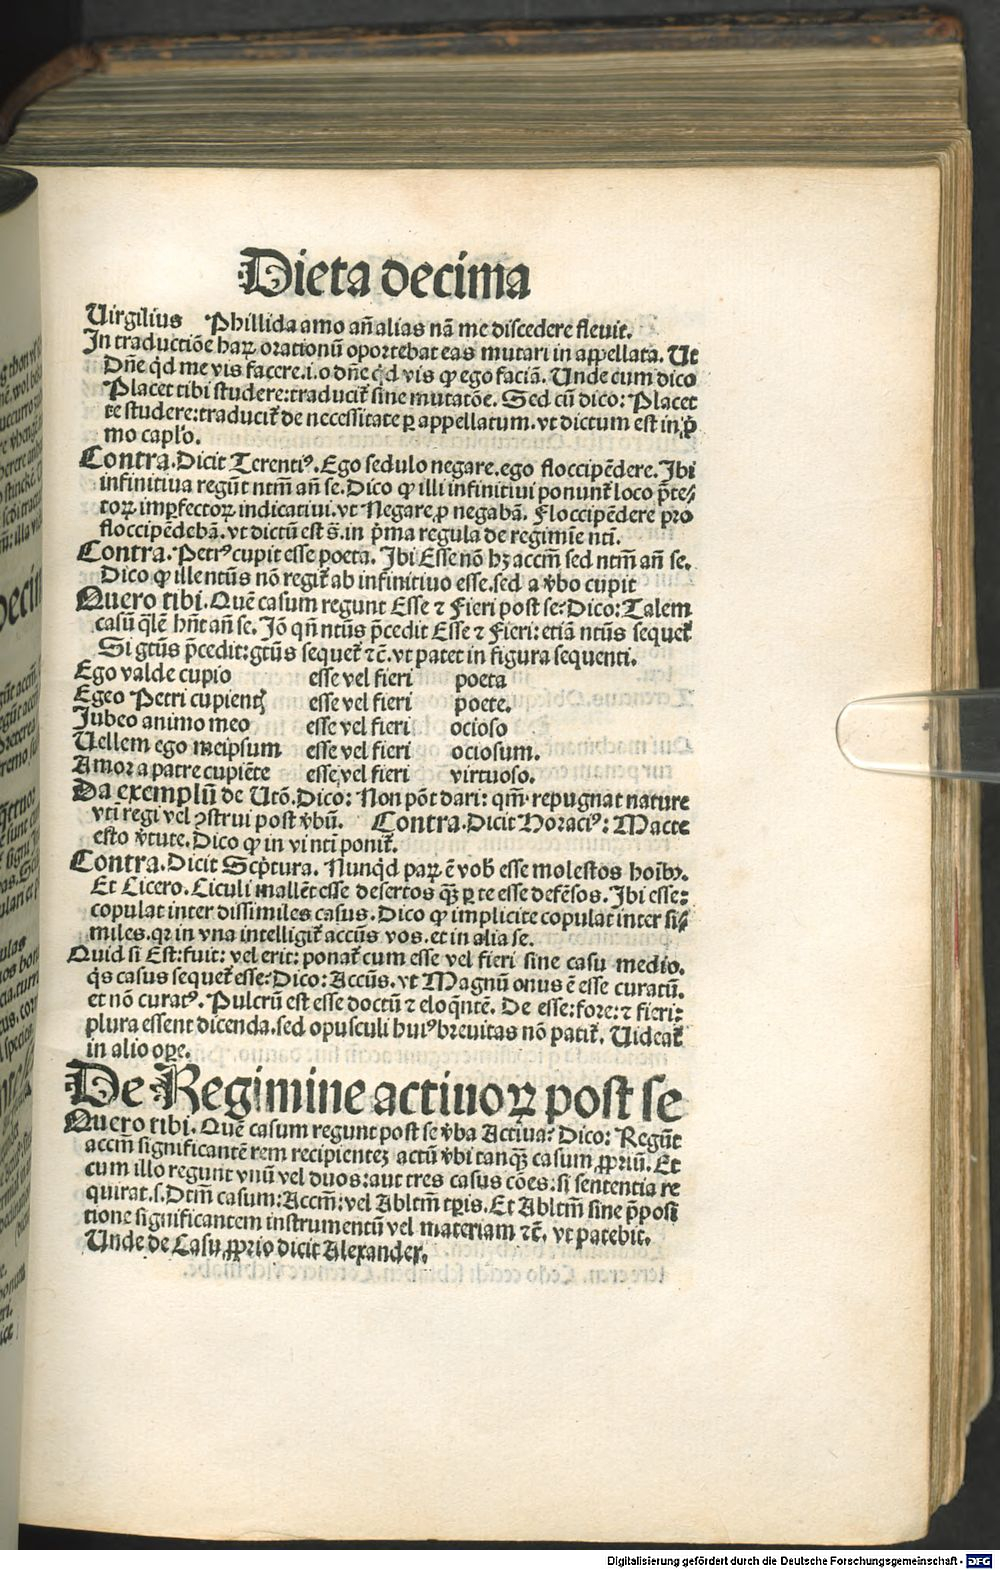 Dieta decima
Uirgilius Phillida amo añ alias nã me discedere fleuit.
In traductiõe haꝝ orationũ oportebat eas mutari in appellata. Ut
Dñe q̇d me vis facere.i.o dñe q̇d vis ꝙ ego faciã. Unde cum dico
Placet tibi studere:traducit᷑ sine mutatõe. Sed cũ dico: Placet
te studere:traducit᷑ de necessitate ꝑ appellatum.vt dictum est in ṗ̱
mo caplo.
Contra.Dicit Terentiꝰ. Ego sedulo negare.ego floccipẽdere. Ibi
infinitiua regũt ntm̃ añ se. Dico ꝙ illi infinitiui ponunt᷑ loco p̃te⸗
toꝝ imꝑfectoꝝ indicatiui.vt Negare ꝓ negabã. Floccipẽdere pro
floccipẽdebã.vt dictũ est s̃.in p̃ma regula de regimie nti.
Contra.Petrꝰ cupit esse poeta. Ibi Esse nõ hꝫ accm̃ sed ntm̃ añ se.
Dico ꝙ ille ntũs nõ regit᷑ ab infinitiuo esse.sed a v̇bo cupit
Quero tibi.Quẽ casum regunt Esse ⁊ Fieri post se? Dico: Talem
casũ q̃lẽ hñt añ se. Iõ qñ ntũs p̃cedit Esse ⁊ Fieri:etiã ntũs sequet᷑
Si gtũs p̃cedit:gtũs sequet᷑ ⁊c̃.vt patet in figura sequenti.
Ego valde cupio esse vel fieri poeta
Egeo Petri cupientꝭ esse vel fieri poete.
Iubeo animo meo esse vel fieri ocioso
Uellem ego meipsum esse vel fieri ociosum.
Amor a patre cupiẽte esse vel fieri virtuoso.
Da exemplũ de Utõ.Dico: Non põt dari: qm̃ repugnat nature
vti̇ regi vel ꝯstrui post v̇bũ. Contra.Dicit Horaciꝰ: Macte
esto v̇tute. Dico ꝙ in vi nti̇ ponit᷑.
Contra.Dicit Scp̃tura. Nunq̇d paꝝ ẽ vob̃ esse molestos hoĩbꝫ.
Et Cicero. Ciculi mallẽt esse desertos q̃ꝫ ꝑ te esse defẽsos. Ibi esse:
copulat inter dissimiles casus. Dico ꝙ implicite copulat inter si⸗
miles.qꝛ in vna intelligit᷑ accũs vos.et in alia se.
Quid si Est:fuit: vel erit: ponat᷑ cum esse vel fieri sine casu medio.
q̇s casus sequet᷑ esse? Dico: Accũs. vt Magnũ onus ẽ esse curatũ.
et nõ curatꝰ. Pulcrũ est esse doctũ ⁊ eloq̃ntẽ. De esse:fore:⁊ fieri:
plura essent dicenda.sed opusculi huiꝰ breuitas nõ patit᷑. Uideat᷑
in alio oꝑe.
De Regimine actiuoꝝ post se
Quero tibi.Quẽ casum regunt post se v̇ba Actiua? Dico: Regũt
accm̃ significantẽ rem recipientẽ actũ v̇bi tanq̃ꝫ casum ꝓpriũ. Et
cum illo regunt vnũ vel duos:aut tres casus cões:si sententia re
quirat.s.Dtm̃ casum:Accm̃:vel Abltm̃ tꝑis. Et Abltm̃ sine p̃posi
tione significantem instrumentũ vel materiam ⁊c̃. vt patebit.
Unde de Casu ꝓprio dicit Alexander.
Digitalisierung gefördert durch die Deutsche Forschungsgemeinschaft - DFG